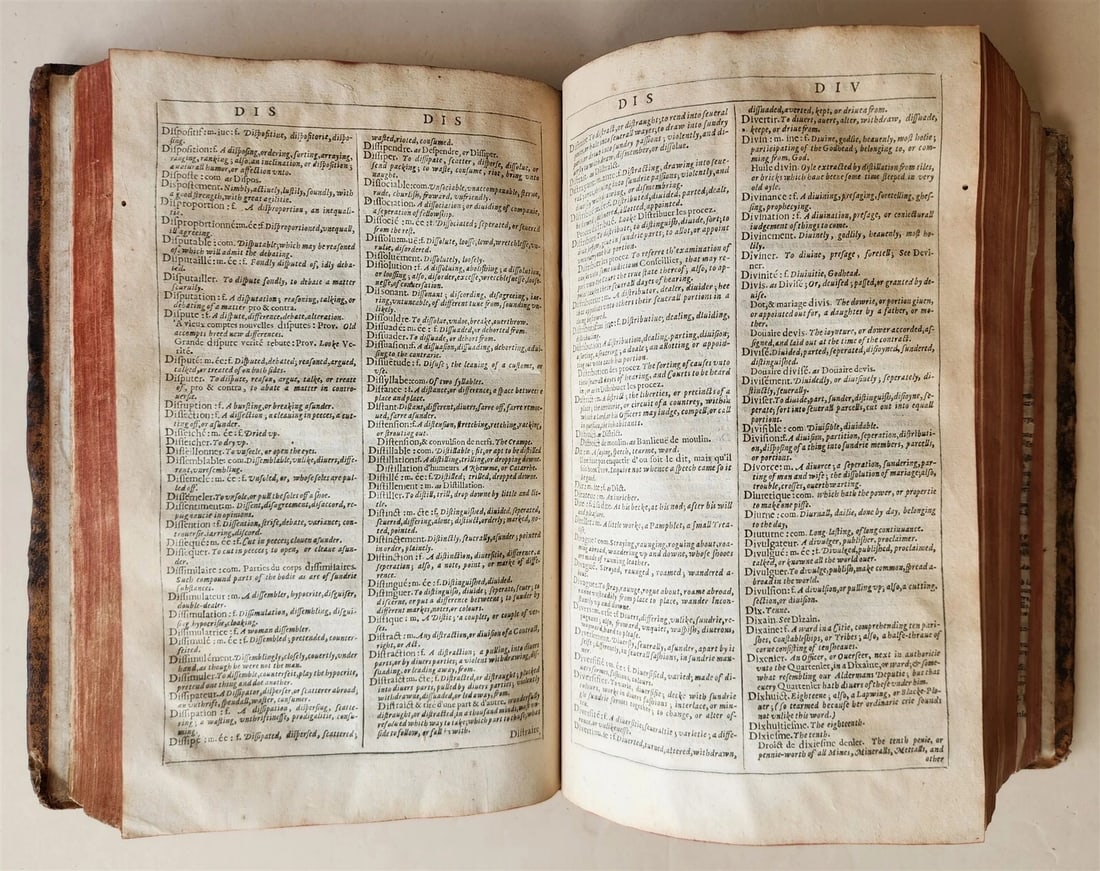 DIS
DIS
Dispositif: m. iue: f. Dispositiue, dispositorie, dispo-
sing.
Disposition: f. A disposing, ordering, sorting, arraying,
ranging, ranking; also, an inclination, or disposition;
a naturall humor, or affection vnto.
Disposte: com. as Dispos.
Dispostement. Nimbly, actiuely, lustily, soundly, with
a good strength, with great agilitie.
Disproportion: f. A disproportion, an inequali-
tie.
Disproportionné: m. ée: f. Disproportioned, vnequall,
ill agreeing.
Disputable: com. Disputable; which may be reasoned
of, which will admit the debating.
Disputaillé: m. ée: f. Fondly disputed of, idly deba-
ted.
Disputailler. To dispute fondly, to debate a matter
scuruily.
Disputation: f. A disputation; reasoning, talking, or
debating of a matter pro & contra.
Dispute: f. A dispute, difference, debate, alteration.
A vieux comptes nouvelles disputes: Prov. Old
accompts breed new differences.
Grande dispute verité rebute: Prov. Looke Ve-
rité.
Disputé: m. ée: f. Disputed, debated, reasoned, argued,
talked, or treated of on both sides.
Disputer. To dispute, reason, argue, talke, or treate
of, pro & contra, to abate a matter in contro-
uersie.
Disruption: f. A bursting, or breaking asunder.
Dissection: f. A dissection; a cleauing in peeces, a cut-
ting off, or asunder.
Disseiché: m. ée: f. Dried vp.
Disseicher. To dry vp.
Dissemblable: com. Dissemblable, vnlike, diuers, diffe-
rent, vnresembling.
Dissemelé: m. ée: f. Vnsoled, or, whose soles are pul-
led off.
Dissemeler. To vnsole, or pull the soles off a shoe.
Dissentiment: m. Dissent, disagreement, disaccord, re-
pugnencie in opinions.
Dissention: f. Dissention, strife, debate, variance, con-
trouersie, iarring, discord.
Dissequé: m. ée: f. Cut in peeces; clouen asunder.
Dissequer. To cut in peeces; to open, or cleaue asun-
der.
Dissimilaire: com. Parties du corps dissimilaires.
Such compound parts of the bodie as are of sundrie
substances.
Dissimulateur: m. A dissembler, hypocrite, disguiser,
double-dealer.
Dissimulation: f. Dissimulation, dissembling, disgui-
sing, hypocrisie, cloaking.
Dissimulatrice: f. A woman dissembler.
Dissimulé: m. ée: f. Dissembled, pretended, counter-
feited.
Dissimulément. Dissemblingly, closely, couertly, vnder
hand, as though he were not the man.
Dissimuler. To dissemble, counterfeit, play the hypocrite,
pretend one thing and doe another.
Dissipateur. A dissipater, disperser, or scatterer abroad,
an vnthrift, spendall, waster, consumer.
Dissipation: f. A dissipation, dispersing, scatte-
ring; a wasting, vnthriftinesse, prodigalitie, consu-
ming.
Dissipé: m. ée: f. Dissipated, dispersed, scattered;
wasted, rioted, consumed.
Dissipendre. as Despendre, or Dissiper.
Dissiper. To dissipate, scatter, disperse, dissolue, or
send packing; to waste, consume, riot, bring vnto
naught.
Dissociable: com. Vnsociable, vnaccompanable, sterne,
rude, churlish, froward, vnfriendly.
Dissociation. A dissociation; or diuiding of companie,
a seperation of fellowship.
Dissocié: m. ée: f. Dissociated; seperated, or scattered
from the rest.
Dissolu: m. uë: f. Dissolute, loose, lewd, wretchlesse, vn-
rulie, disordered.
Dissoluement. Dissolutely, loosely.
Dissolution: f. A dissoluing, abolishing; a dissolution,
or loosing; also, disorder, excesse, wretchlesnesse, loose-
nesse of conuersation.
Dissonant. Dissonant; discording, disagreeing, iar-
ring, vntuneable, of different tune from, sounding vn-
likely.
Dissouldre. To dissolue, vndoe, breake, ouerthrow.
Dissuadé: m. ée: f. Dissuaded, or dehorted from.
Dissuader. To dissuade, or dehort from.
Dissuasion: f. A dissuasion, dissuading, dehorting, adui-
sing to the contrarie.
Dissuëtude: f. Disuse; the leauing of a custome, or
vse.
Dissyllabe: com. Of two syllables.
Distance: f. A distance, or difference, a space betweene
place and place.
Distant. Distant, different, diuers, farre off, farre remo-
ued, farre asunder.
Distension: f. A distension, stretching, retching, racking,
or strouting out.
Distension, & convulsion de nerfs. The Crampe.
Distillable: com. Distillable; fit, or apt to be distilled.
Distillation: f. A distilling, trilling, or dropping downe.
Distillation d'humeurs. A Rhewme, or Catarrhe.
Distillé: m. ée: f. Distilled; trilled, dropped downe.
Distillement: m. as Distillation.
Distiller. To distill, trill, drop downe by little and lit-
tle.
Distinct: m. cte: f. Distinct, distinguished, diuided, seperated,
seuered, differing, alone; distinct, orderly; marked, no-
ted, pointed.
Distinctement. Distinctly, seuerally, asunder; pointed
in order, plainely.
Distinction: f. A distinction, diuersitie, difference, a
seperation; also, a note, point, or marke of diffe-
rence.
Distingué: m. ée: f. Distinguished, diuided.
Distinguer. To distinguish, diuide, seperate, seuer; to
discerne, or put a difference betweene; to sunder by
different markes, notes, or colours.
Distique: m. A Distic; a couple of ver-
ses.
Distract: m. Any distraction, or diuision of a Contract,
right, or Act.
Distraction: f. A distraction; a pulling, into diuers
parts, or by diuers parties; a violent withdrawing, dis-
suading, or leading away, from.
Distraict: m. cte: f. Distracted, or distraught; plucked
into diuers parts, pulled by diuers parties; violently
withdrawne, dissuaded, or led away, from.
Distraict & tiré d'une part & d'autre. wonderfully
distraught, or distracted in a thousand minds, much vn-
resolued which way to take; which part to, what
side to follow, or fall in with.
Distraire,
DIS
DIV
Distraire. To distract, or distraught; to rend into seuerall
parts, draw into sundry
drawne, dismember, or dissolue.
distracting, drawing into seue-
rall
rending, or dismembring.
Distributed, diuided, parted, dealt,
allotted, appointed.
Distribuer les procez.
to distinguish, diuide, sort; to
put in sundrie parts; to allot, or appoint
To referre th'examination of
Conseillier, that may re-
port the true state thereof; also, to ap-
point seuerall dayes of hearing.
A distributor, dealer, diuider; hee
that giues vnto others their seuerall portions in a
f. Distributiue; dealing, diuiding,
A distribution, dealing, parting, diuision;
a doale; an allotting, or appoint-
Distribution des procez. The sorting of causes vnto
Courts to be heard
Distribuer les procez.
A district; the liberties, or precincts of a
place; the territorie, or circuit of a countrey, within
which a Lord or his Officers may iudge, compell, or call
in question, the inhabitants.
District de moulin. as Banlieuë de moulin.
A saying, speech, tearme, word.
Ne t'en enquier d'ou soit le dit, mais qu'il
soit bon. Inquire not whence a speech came so it
be good.
Dite: f. as Dict.
An inricher.
at his nod; after his will
and pleasure.
A little worke, a Pamphlet, a small Trea-
tise.
Straying, rauaging, roguing about, roa-
ming abroad, wandering vp and downe, whose shooes
are made of running leather.
Strayed, rauaged, roamed; wandered a-
broad.
To stray, raunge, rogue about, roame abroad,
runne vnsteadily from place to place, wander incon-
stantly vp and downe.
Diuers, differing, vnlike, sundrie, re-
froward, vnquiet, waspish, diuerous,
hard to please.
Diuersly, seuerally, asunder, apart by it
selfe; differently, in seuerall fashions, in sundrie man-
ners.
Diversifié: m. ée: f. Diuersified, varied; made of di-
Diversifier. To varie, diuersifie, decke with sundrie
fashions, interlace, or min-
gle sundrie sorts together; to change, or alter of-
ten.
Diversité: f. A diuersitie, seueraltie; varietie; a diffe-
rence, or vnlikenesse.
Diverti: m. ie: f. Diuerted, turned, altered, withdrawn,
dissuaded, auerted, kept, or driuen from.
Divertir. To diuert, auert, alter, withdraw, dissuade,
keepe, or driue from.
Divin: m. ine: f. Diuine, godlie, heauenly, most holie;
participating of the Godhead; belonging to, or com-
ming from, God.
Huile divin. Oyle extracted by distillation from tiles,
or bricks which haue beene some time steeped in very
old oyle.
Divinance: f. A diuining, presaging, foretelling, ghes-
sing, prophecying.
Divination: f. A diuination, presage, or coniecturall
iudgement of things to come.
Divinement. Diuinely, godlily, heauenly, most ho-
lily.
Diviner. To diuine, presage, foretell; See Devi-
ner.
Divinité: f. Diuinitie, Godhead.
Divis. as Divisé; Or, deuised; passed, or granted by de-
uise.
Dot, & mariage divis. The dowrie, or portion giuen,
or appointed out, for a daughter by a father, or mo-
ther.
Douaire devis. The ioynture, or dower accorded, as-
signed, and laid out at the time of the contract.
Divisé. Diuided, parted, seperated, disioyned, sundered,
distinguished.
Douaire divisé. as Douaire devis.
Divisément. Diuidedly, or diuisedly; seperately, di-
stinctly, seuerally.
Diviser. To diuide, part, sunder, distinguish, disioyne, se-
perate; sort into seuerall parcels, cut out into equall
portions.
Divisible: com. Diuisible, diuidable.
Division: f. A diuision, partition, seperation, distributi-
on, disposing of a thing into sundrie members, parcells,
or portions.
Divorce: m. A diuorce; a seperation, sundering, par-
ting of man and wife; the dissolution of mariage; also,
trouble, crosses, ouerthwarting.
Diuretique: com. which hath the power, or propertie
to make one pisse.
Diurne: com. Diurnall, dailie, done by day, belonging
to the day.
Diuturne: com. Long lasting, of long continuance.
Divulgateur. A divulger, publisher, proclaimer.
Divulgué: m. ée: f. Divulged, published, proclaimed,
talked, or knowne all the world ouer.
Divulguer. To divulge, publish, make common, spread a-
broad in the world.
Divulsion: f. A divulsion, or pulling vp; also, a cutting,
section, or diuision.
Dix. Tenne.
Dixain. See Dizain.
Dixaine: f. A ward in a Citie, comprehending ten pari-
shes, Constableships, or Tribes; also, a halfe-thraue of
corne consisting of ten sheaues.
Dixenier. An Officer, or Ouerseer, next in authoritie
vnto the Quartenier, in a Dixaine, or ward; & some-
what resembling our Aldermans Deputie; but that
euery Quartenier hath diuers of these vnder him.
Dixhuict. Eighteene; also, a Lapwing, or Blacke-Plo-
uer; (so tearmed because her ordinarie crie sounds
not vnlike this word.)
Dixhuictiesme. The eighteenth.
Dixiesme. The tenth.
Droict de dixiesme denier. The tenth penie, or
pennie-worth of all Mines, Mineralls, Mettalls, and
other